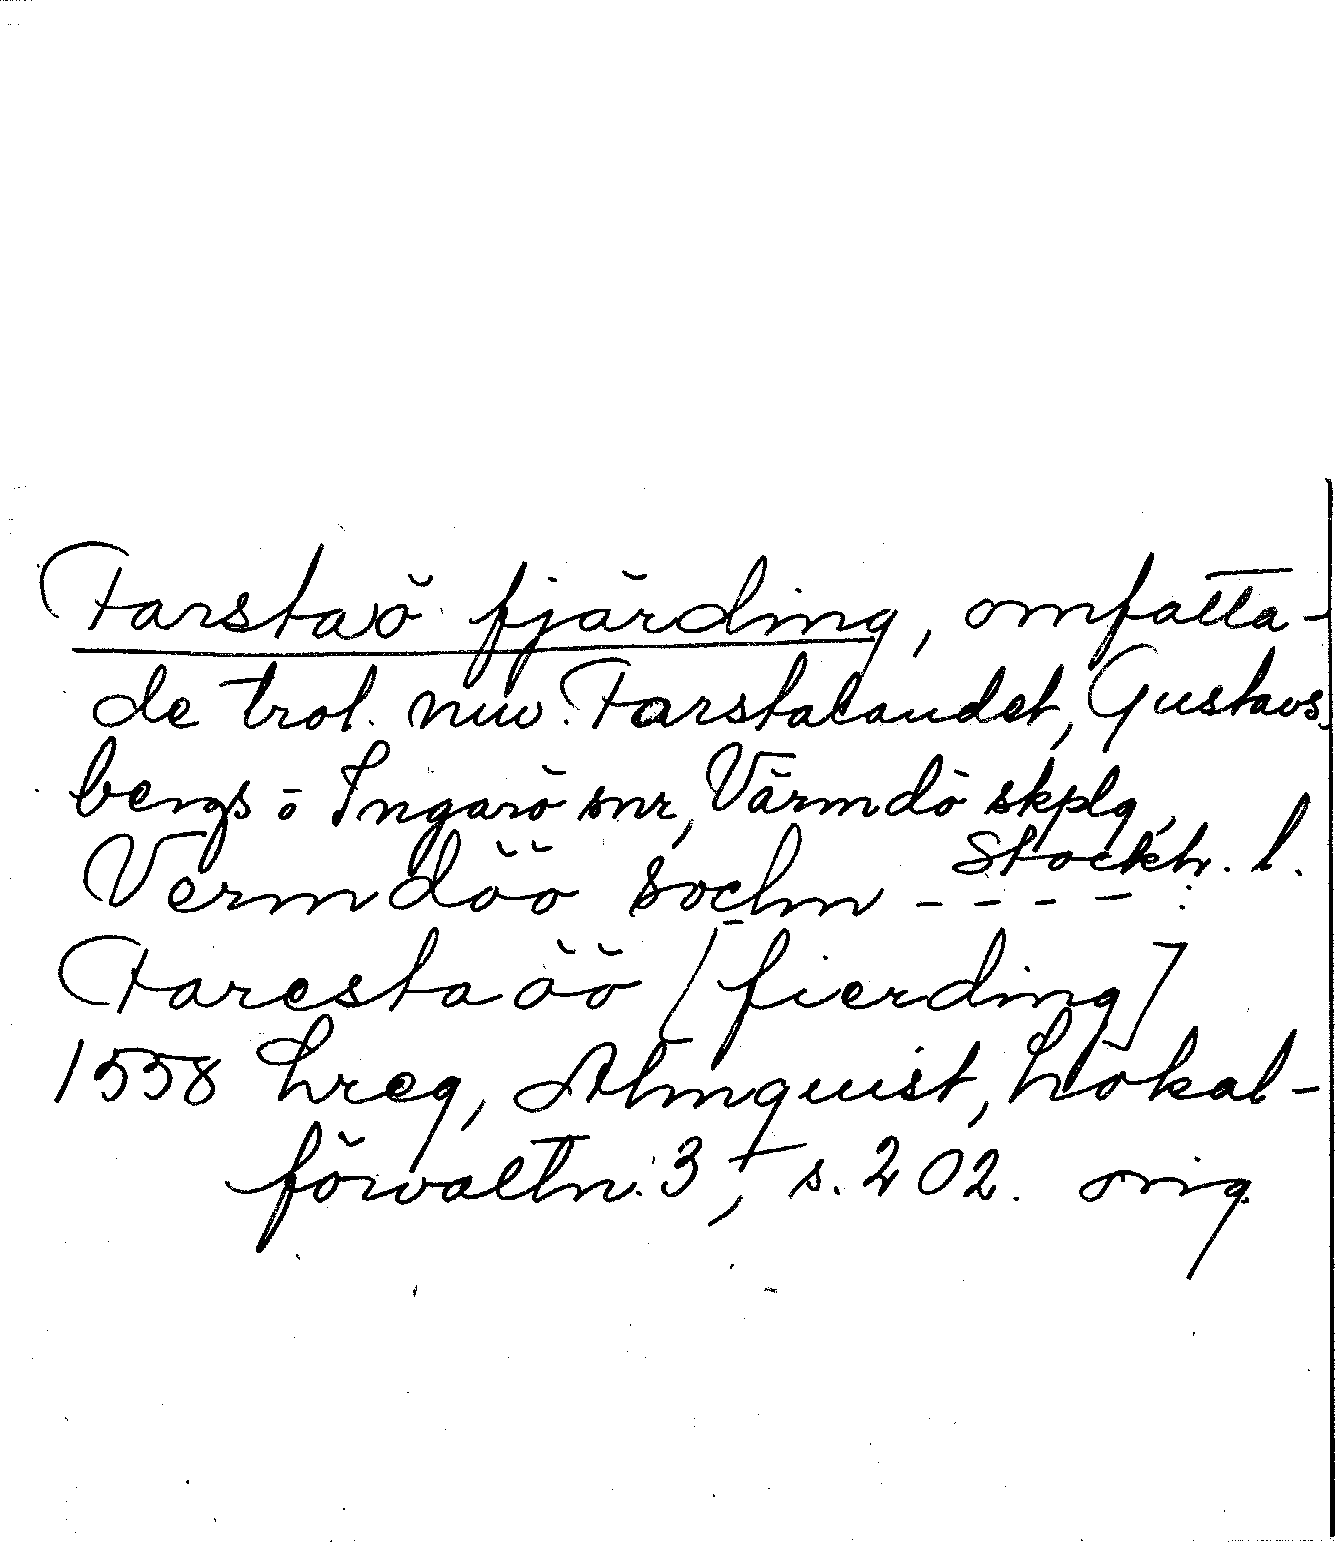 Farstaö fjärding, omfatta-
de trol. nuv. Farstalandet, Gustavs-
bergs o Ingarö snr, Värmdö skplg,
Stockh. l.
Vermdöö sochn - - - - :
Farestaöö [fierding]
1558 Lreg, Almquist, Lokal-
förvaltn. 3, s. 202. orig.